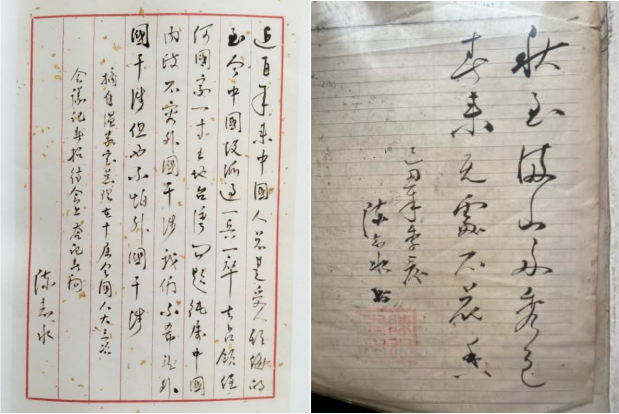 近百年来中国人总是受人欺侮的
至今中国没派过一兵一卒去占领任
何国家一寸土地台湾问题纯属中国
内政不容外国干涉我们不希望外
国干涉但也不怕外国干涉
摘自温家宝总理在十届全国人大三次
会议记者招待会上答记者问
陈志水
秋至满山多秀色
春来无处不花香
年 陈志水书